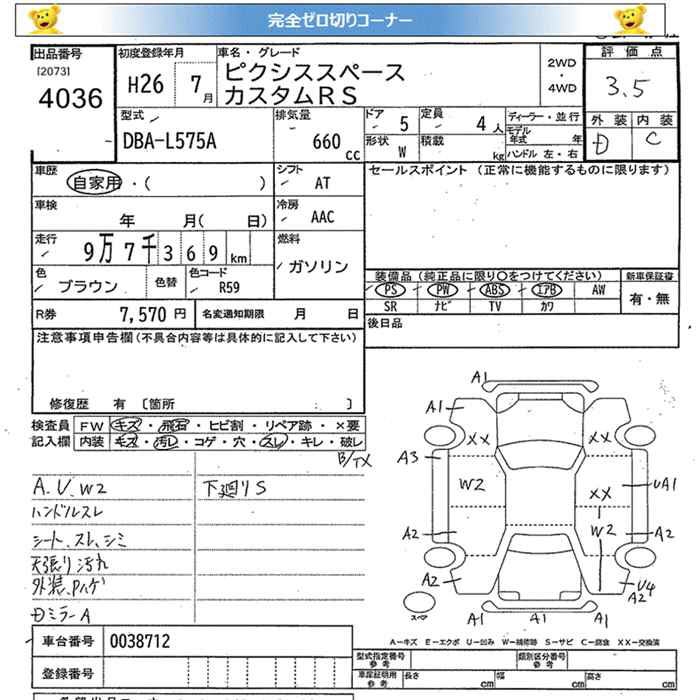 完全ゼロ切りコーナー
出品番号 初度登録年月 車名・グレード 評価点
[2073] 4036 H26 7月 ピクシススペース 2WD・4WD 3.5
カスタムRS
外装 内装
D C
型式 排気量 ドア 定員 ディーラー・並行
DBA-L575A 660cc 5 4人 モデル年式 年
形状 積載 ハンドル 左・右
W kg
車歴 シフト セールスポイント (正常に機能するものに限ります)
自家用・( ) AT
車検 冷房
年 月( 日) AAC
走行 燃料
9万7千369km ガソリン
色 色替 色コード 装備品(純正品に限り○をつけてください) 新車保証書
ブラウン R59 PS PW ABS エアB AW 有・無
SR ナビ TV カワ
R券 7,570円 名変通知期限 月 日 後日品
注意事項申告欄(不具合内容等は具体的に記入して下さい)
修復歴 有 [箇所 ]
検査員 FW キズ・飛石・ヒビ割・リペア跡・×要
記入欄 内装 キズ・汚レ・コゲ・穴・スレ・キレ・破レ
B/TX
A.U.W2 下廻りS
ハンドルスレ
シート、スレ、シミ
天張り汚れ
外装、Pハゲ
Dミラー A
A1
A1
XX XX
A3 W2 XX UA1
A2 W2 A2
A2 U4
A2
スペア A1 A1 A1
A-キズ E-エクボ U-凹み W-補修跡 S-サビ C-腐食 XX-交換済
車台番号 0038712
型式指定番号 参考 類別区分番号 参考
登録番号 車庫証明用 参考 長さ cm 幅 cm 高さ cm